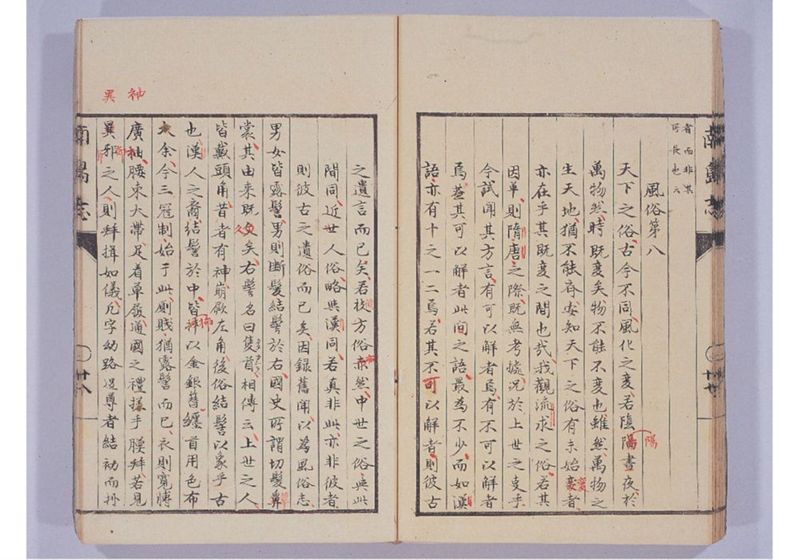 南島志
可長也云
風俗第八
天下之俗古今不同風化之变若陰陽晝夜於
陽
萬物然時既变矣物不能不变也雖然萬物之
生天地猶不能齊安知天下之俗有未始变者
亦在乎其既变之間也哉我觀流求之俗若其
因革則隋唐之際既無考據况於上世之变乎
今試聞其方言有可以解者焉有不可以解者
焉盖其可以解者此間之語最為不少而如漢
語亦有十之一二焉若其不可以解者則彼古
之遺言而已矣若彼方俗亦然中世之俗與此
間同近世人俗略與漢同若真非此亦非彼者
則彼古之遺俗而已矣因錄舊聞以為風俗志
男女皆露髻男則断髮結髻於右國史所謂切髮
裳其由来既久矣右髻名曰隻首相傳云上世之人
皆戴頭角昔者有神崩厥左角後俗結髻以象乎古
也漢人之裔結髻於中皆以金銀舊纏首用色布
今三冠制始于此則賤猶露髻而已衣則寬博
袖
廣袖腰束大帯足着草履通國之禮搓手腰拜若見
異
異邦之人則拜揖如儀凡字幼路遇尊者結初而抄
南島志